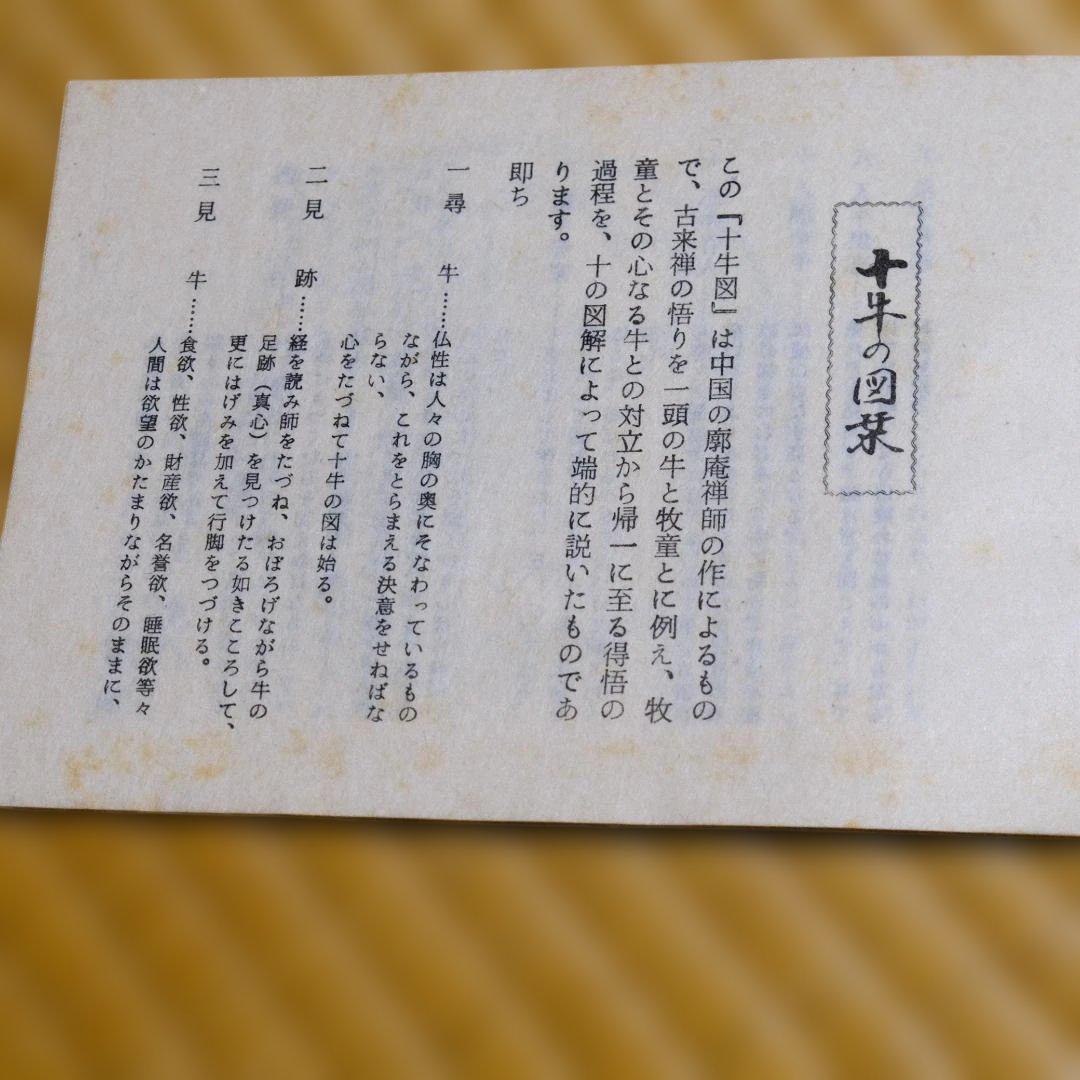 十牛の図栞
この『十牛図』は中国の廓庵禅師の作によるもの
で、古来禅の悟りを一頭の牛と牧童とに例え、牧
童とその心なる牛との対立から帰一に至る得悟の
過程を、十の図解によって端的に説いたものであ
ります。
即ち
一尋　牛……仏性は人々の胸の奥にそなわっているもの
ながら、これをとらまえる決意をせねばな
らない、
心をたづねて十牛の図は始る。
二見　跡……経を読み師をたづね、おぼろげながら牛の
足跡（真心）を見つけたる如きこころして、
更にはげみを加えて行脚をつづける。
三見　牛……食欲、性欲、財産欲、名誉欲、睡眠欲等々
人間は欲望のかたまりながらそのままに、